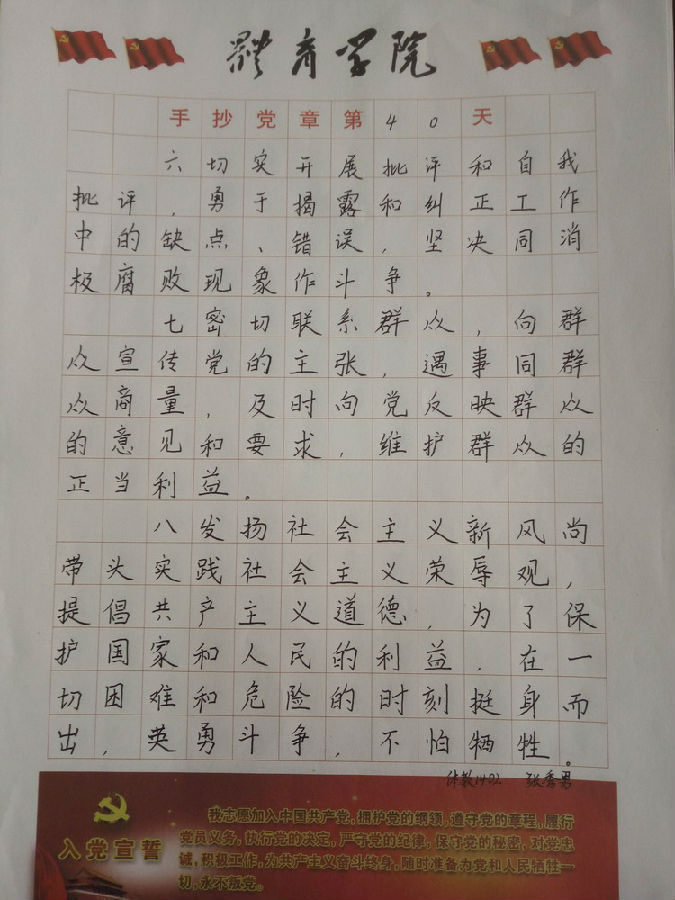 體育学院
手抄党章第40天
六切实开展批评和自我
批评，勇于揭露和纠正工作
中的缺点、错误，坚决同消
极腐败现象作斗争。
七密切联系群众，向群
众宣传党的主张，遇事同群
众商量，及时向党反映群众
的意见和要求，维护群众的
正当利益。
八发扬社会主义新风尚
带头实践社会主义荣辱观，
提倡共产主义道德，为了保
护国家和人民的利益．在一
切困难和危险的时刻挺身而
出，英勇斗争，不怕牺牲。
体教1402 张秀男
入党宣誓
我志愿加入中国共产党，拥护党的纲领，遵守党的章程，履行
党员义务，执行党的决定，严守党的纪律，保守党的秘密，对党忠
诚，积极工作，为共产主义奋斗终身，随时准备为党和人民牺牲一
切，永不叛党。